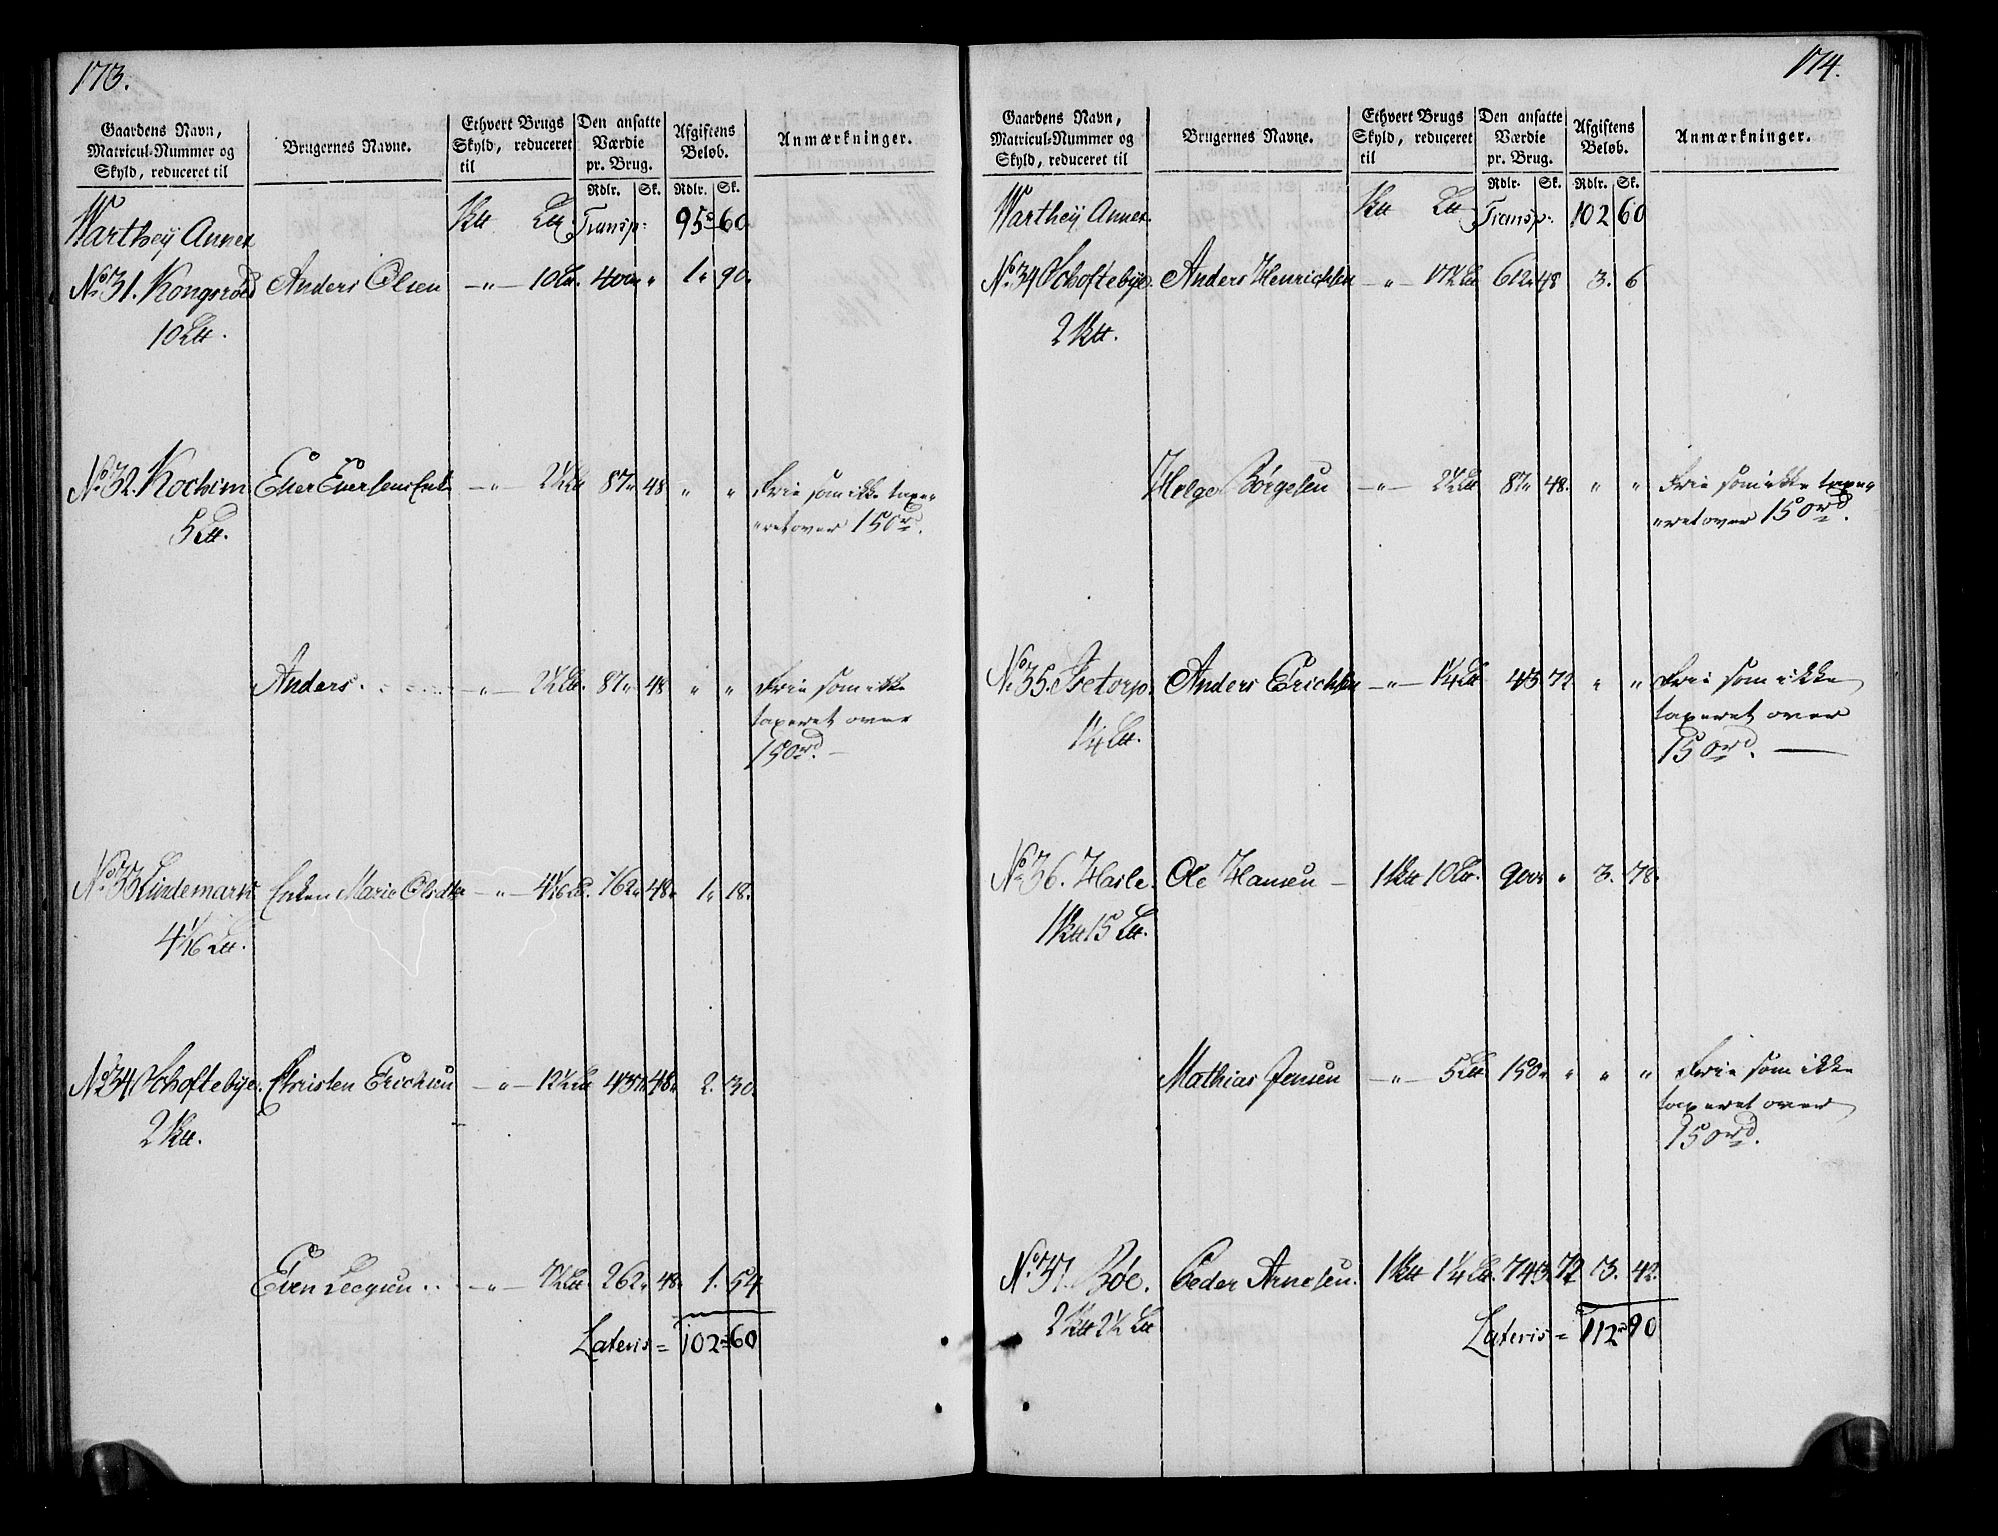 173.
Gaardens Navn, Matricul-Nummer og Skyld, reduceret til | Brugernes Navne. | Ethvert Brugs Skyld, reduceret til | Den ansatte Værdie pr. Brug. Rdlr. Sk. | Afgiftens Beløb. Rdlr. Sk. | Anmærkninger.
Warthey Annex Transp: 95 60
No 31. Kongsrød Anders Olsen — " — 10 400 " 1 " 90.
10
No 32. — " — 2½ 87 " 48 " " Frie som ikke taxe=
5 =ret over 150 rd.
Anders . — " — 2½ 87 " 48 " " Frie som ikke
taxeret over
150 rd. —
No 33 Lindemark Enken Marie Olsdtr — " — 4 1/16 162 " 48 " 1 " 18.
4 1/16
No 34 Schoftebye. Christen Erichsen — " — 12½ 437 " 48 " 2. 30.
2
Even — " — 7½ 262 " 48 " 1. 54
Lateris = 102 = 60
174.
Gaardens Navn, Matricul-Nummer og Skyld, reduceret til | Brugernes Navne. | Ethvert Brugs Skyld, reduceret til | Den ansatte Værdie pr. Brug. Rdlr. Sk. | Afgiftens Beløb. Rdlr. Sk. | Anmærkninger.
Warthey Annex. Transp: 102 60
No 34 Schoftebye. Anders Henrichsen — " — 17½ 612 " 48 3. 6
2
Helge Børgesen — " — 2½ 87 " 48. " " Frie som ikke taxe=
=ret over 150 rd.
No 35. Isetorp. Anders Erichsen — " — 1¼ 43 72 " " Frie som ikke
1¼ taxeret over
150 rd. —
No 36. Hasle. Ole Hansen — 1 10 900 " " 3. 78.
1 15
Mathias Jensen — " — 5 150 " " " " Frie som ikke
taxeret over
150 rd.
No 37. Bøe. Peder Arnesen. 1 1¼ 743. 72 3. 42.
2 2½
Lateris = 112 90